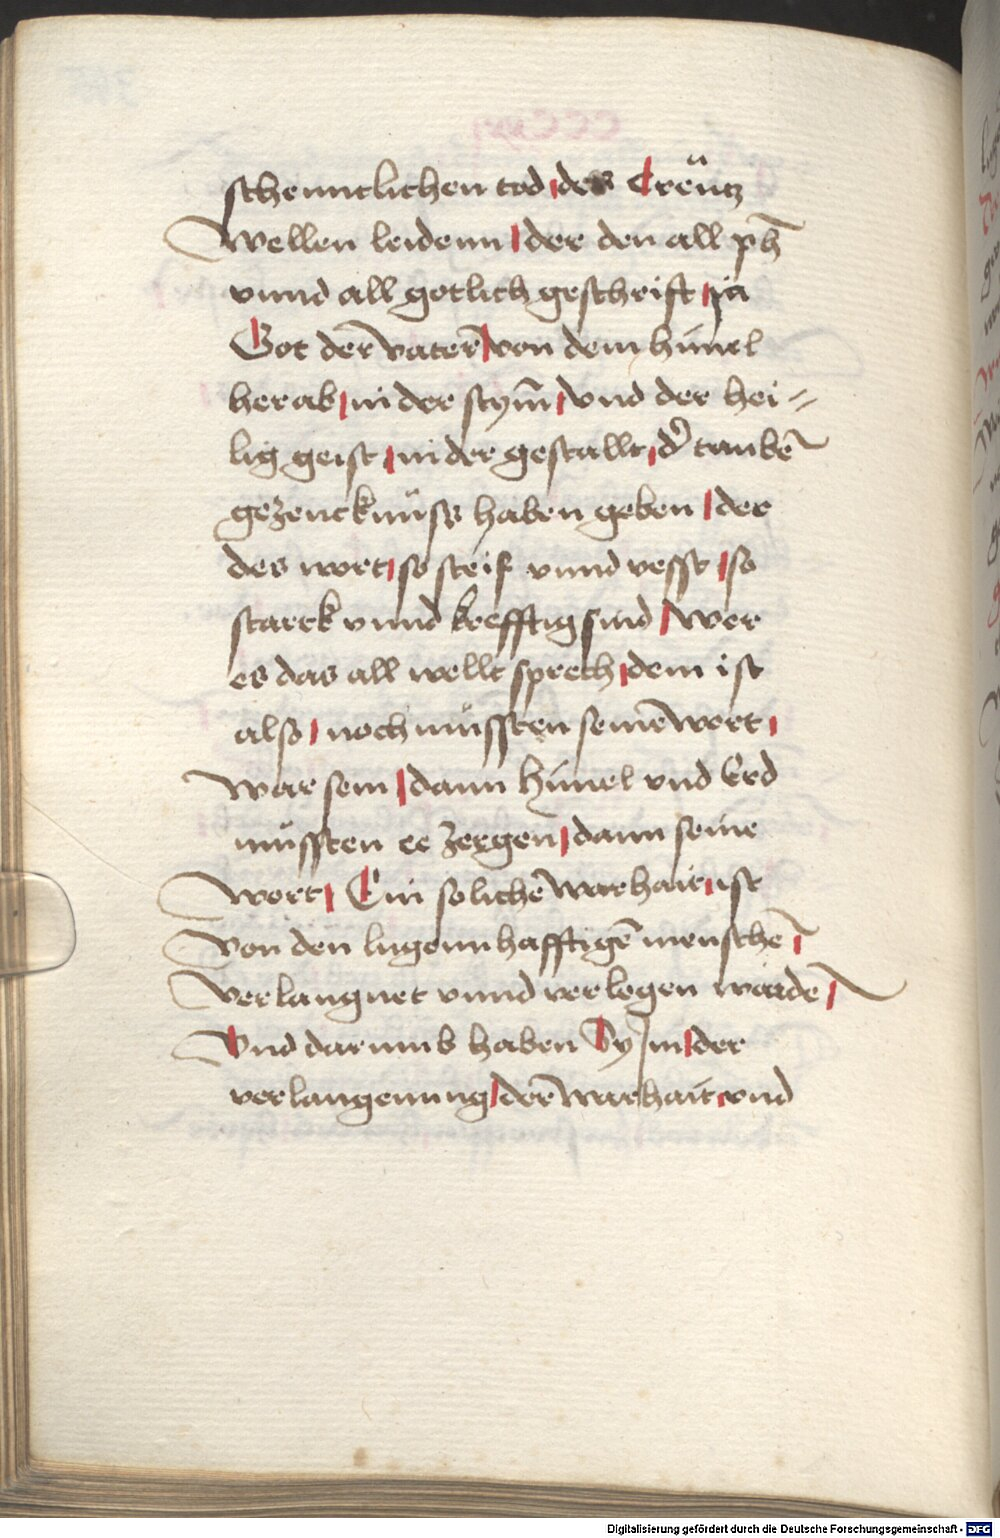 schenntlichen tod des Creütz
wellen leidenn der den all ꝓph̄
vnnd all gotlich geschrift ja
Got der̄ vater̄ von dem him̄el
herab in der stym̄ vnd der hei=
lig geist in der gestallt d' tauben̄
gezeucknüss haben geben der
des wort so steif vnnd vesst so
starck vnnd krefftig sind wer
es das all wellt sprech dem ist
also noch müssten seine̅ wort
war sein dann him̄el vnd Erd
müssten ee zergen dann seine
wort Ein soliche̅ warhait ist
von den lugennhafftige̅ mensche̅
verlaugnet vnnd verlogen warde̅
Vnd darumb haben Sy in der
verlaugnung der̄ warhait vnd
Digitalisierung gefördert durch die Deutsche Forschungsgemeinschaft - DFG